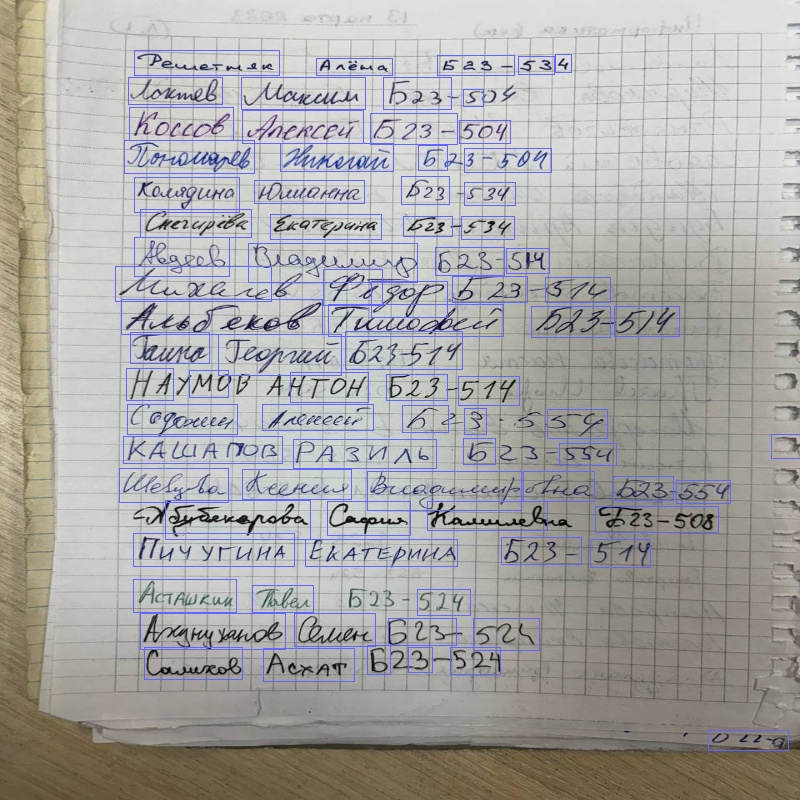 Решетняк Алёна Б23-534
Локтев Максим Б23-504
Коссов Алексей Б23-504
Пономарев Николай Б23-504
Колядина Юлианна Б23-534
Снегирёва Екатерина Б23-534
Авдеев Владимир Б23-514
Михалев Фёдор Б23-514
Альбеков Тимофей Б23-514
Георгий Б23-514
НАУМОВ АНТОН Б23-514
Алексей Б23-554
КАШАПОВ РАЗИЛЬ Б23-554
Шевцова Ксения Владимировна Б23-554
Абубекарова Сафия Камилевна Б23-508
ПИЧУГИНА ЕКАТЕРИНА Б23-514
Асташкин Павел Б23-524
Семен Б23-524
Салихов Асхат Б23-524